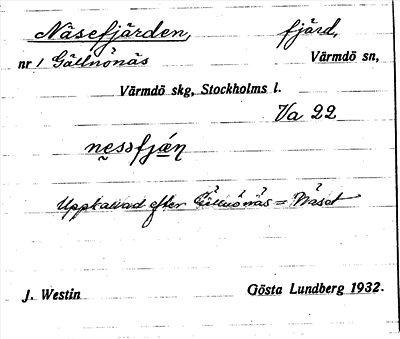 Näsefjärden, fjärd,
nr 1 Gällnönäs Värmdö sn,
Värmdö skg, Stockholms l.
Va 22
nessfjæ̣n
Uppkallad efter Gällnönäs = Näset
J. Westin Gösta Lundberg 1932.